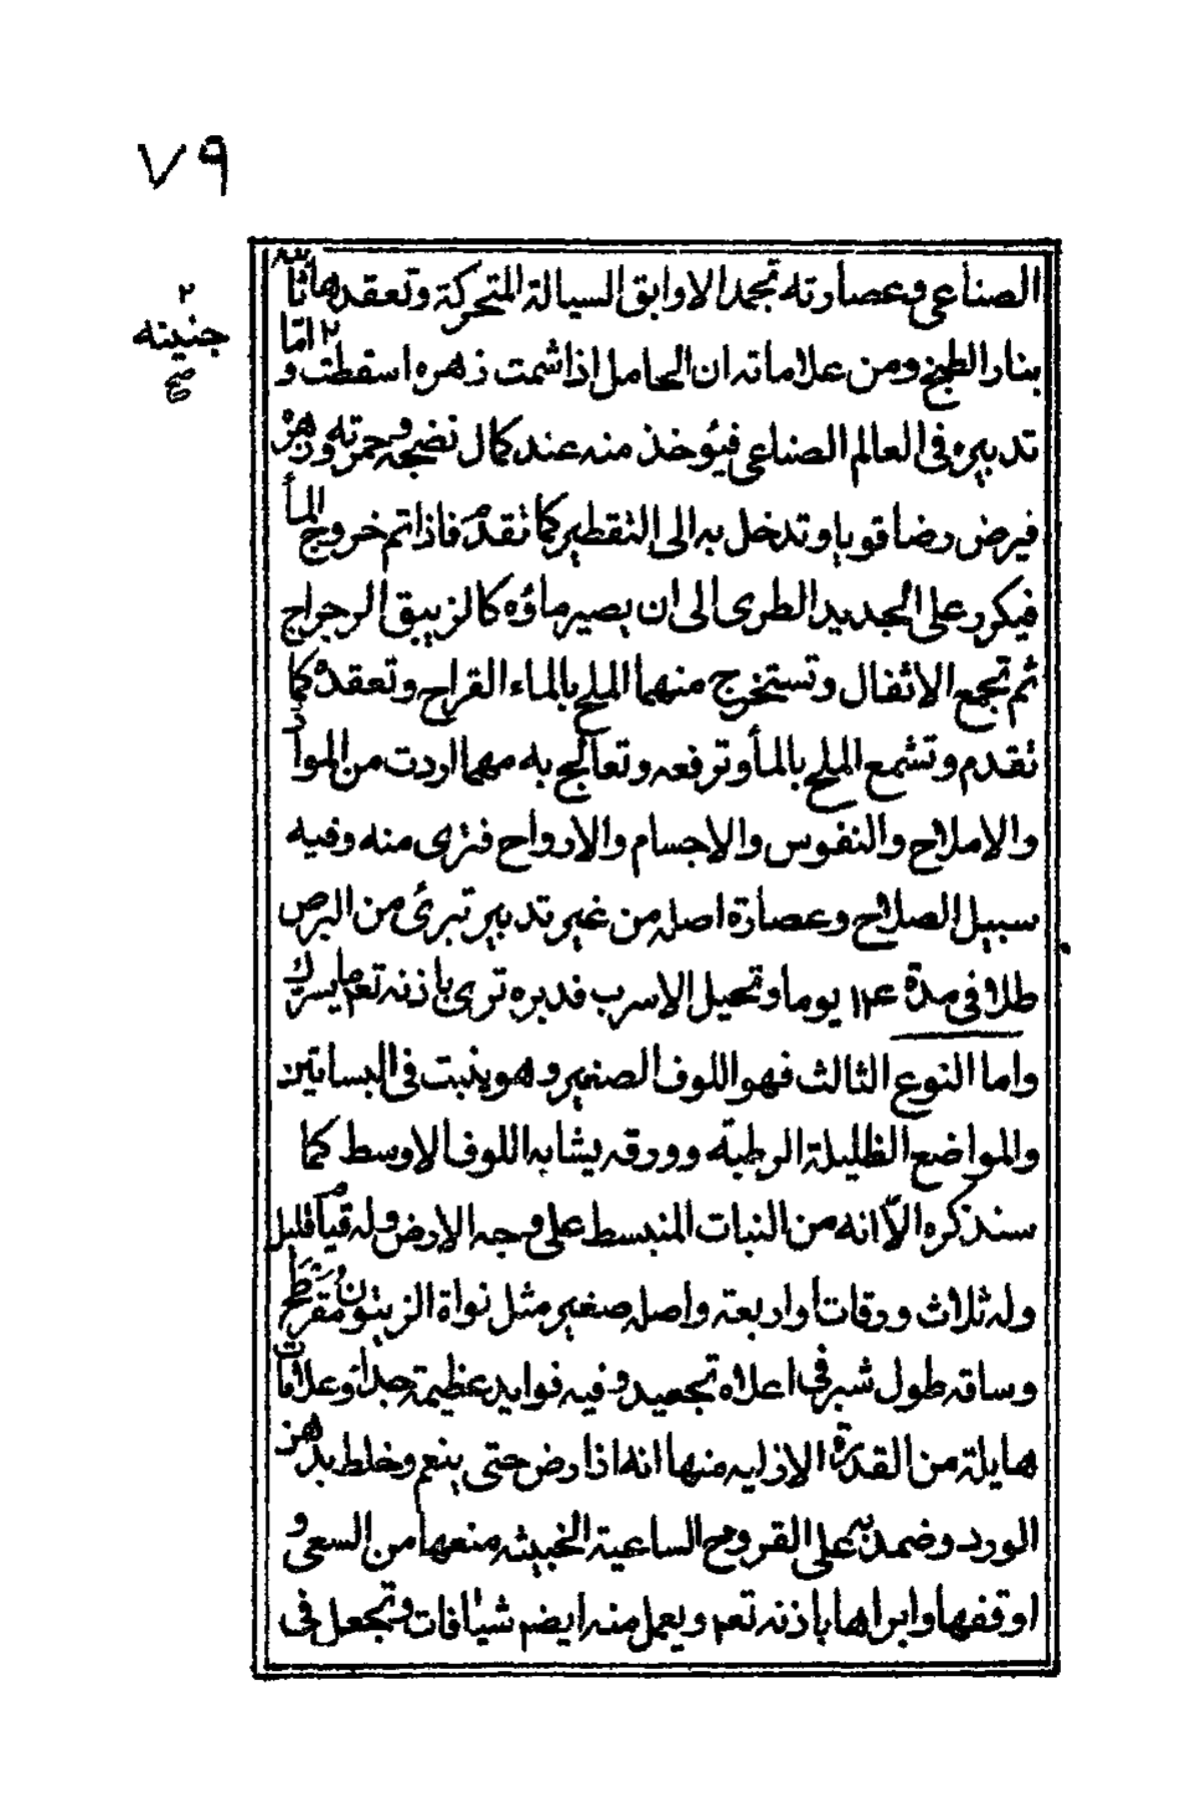 ٧٩
الصناعى وعصارته تجمد الاوابق السيالة المتحركة وتعقدها ثابتة
بنار الطبخ ومن علاماته ان الحامل اذا شمت زهره اسقطت ٢ واما
تدبيره فى العالم الصناعى فيؤخذ منه عند كمال نضجه وحمرته وزهره
فيرض رضا قويا وتدخل به الى التقطير كما تقدم فاذا تم خروج المأ
فيكرر على الجديد الطرى الى ان يصير ماؤه كالزيبق الرجراج
ثم تجمع الاثفال وتستخرج منهما الملح بالماء القراح وتعقده كما
تقدم وتشمع الملح بالمأ وترفعه وتعالج به مهما اردت من المواد
والاملاح والنفوس والاجسام والارواح فترى منه وفيه
سبيل الصلاح وعصارة اصله من غير تدبير تبرئ من البرص
طلا فى مدة ١٢٤ يوما وتحيل الاسرب فدبره ترى باذنه تعم ما يسرك
واما النوع الثالث فهو اللوف الصغير وهو ينبت فى البساتين
والمواضع الظليلة الرطبة وورقه يشابه اللوف الاوسط كما
سنذكره الاّ انه من النبات المنبسط على وجه الارض وله قيام قليل
وله ثلاث ورقات او اربعة واصله صغير مثل نواة الزيتون مفرطح
وساقه طول شبر فى اعلاه تجعيد وفيه فوايد عظيمة جدا وعلامات
هايلة من القدرة الازليه منها انه اذا رض حتى ينعم وخلط بدهن
الورد وضمد به على القروح الساعية الخبيثه منعها من السعى و
اوقفها وابراها باذنه تعم ويعمل منه ايضم شيافات وتجعل فى
٢
جنينه
صح